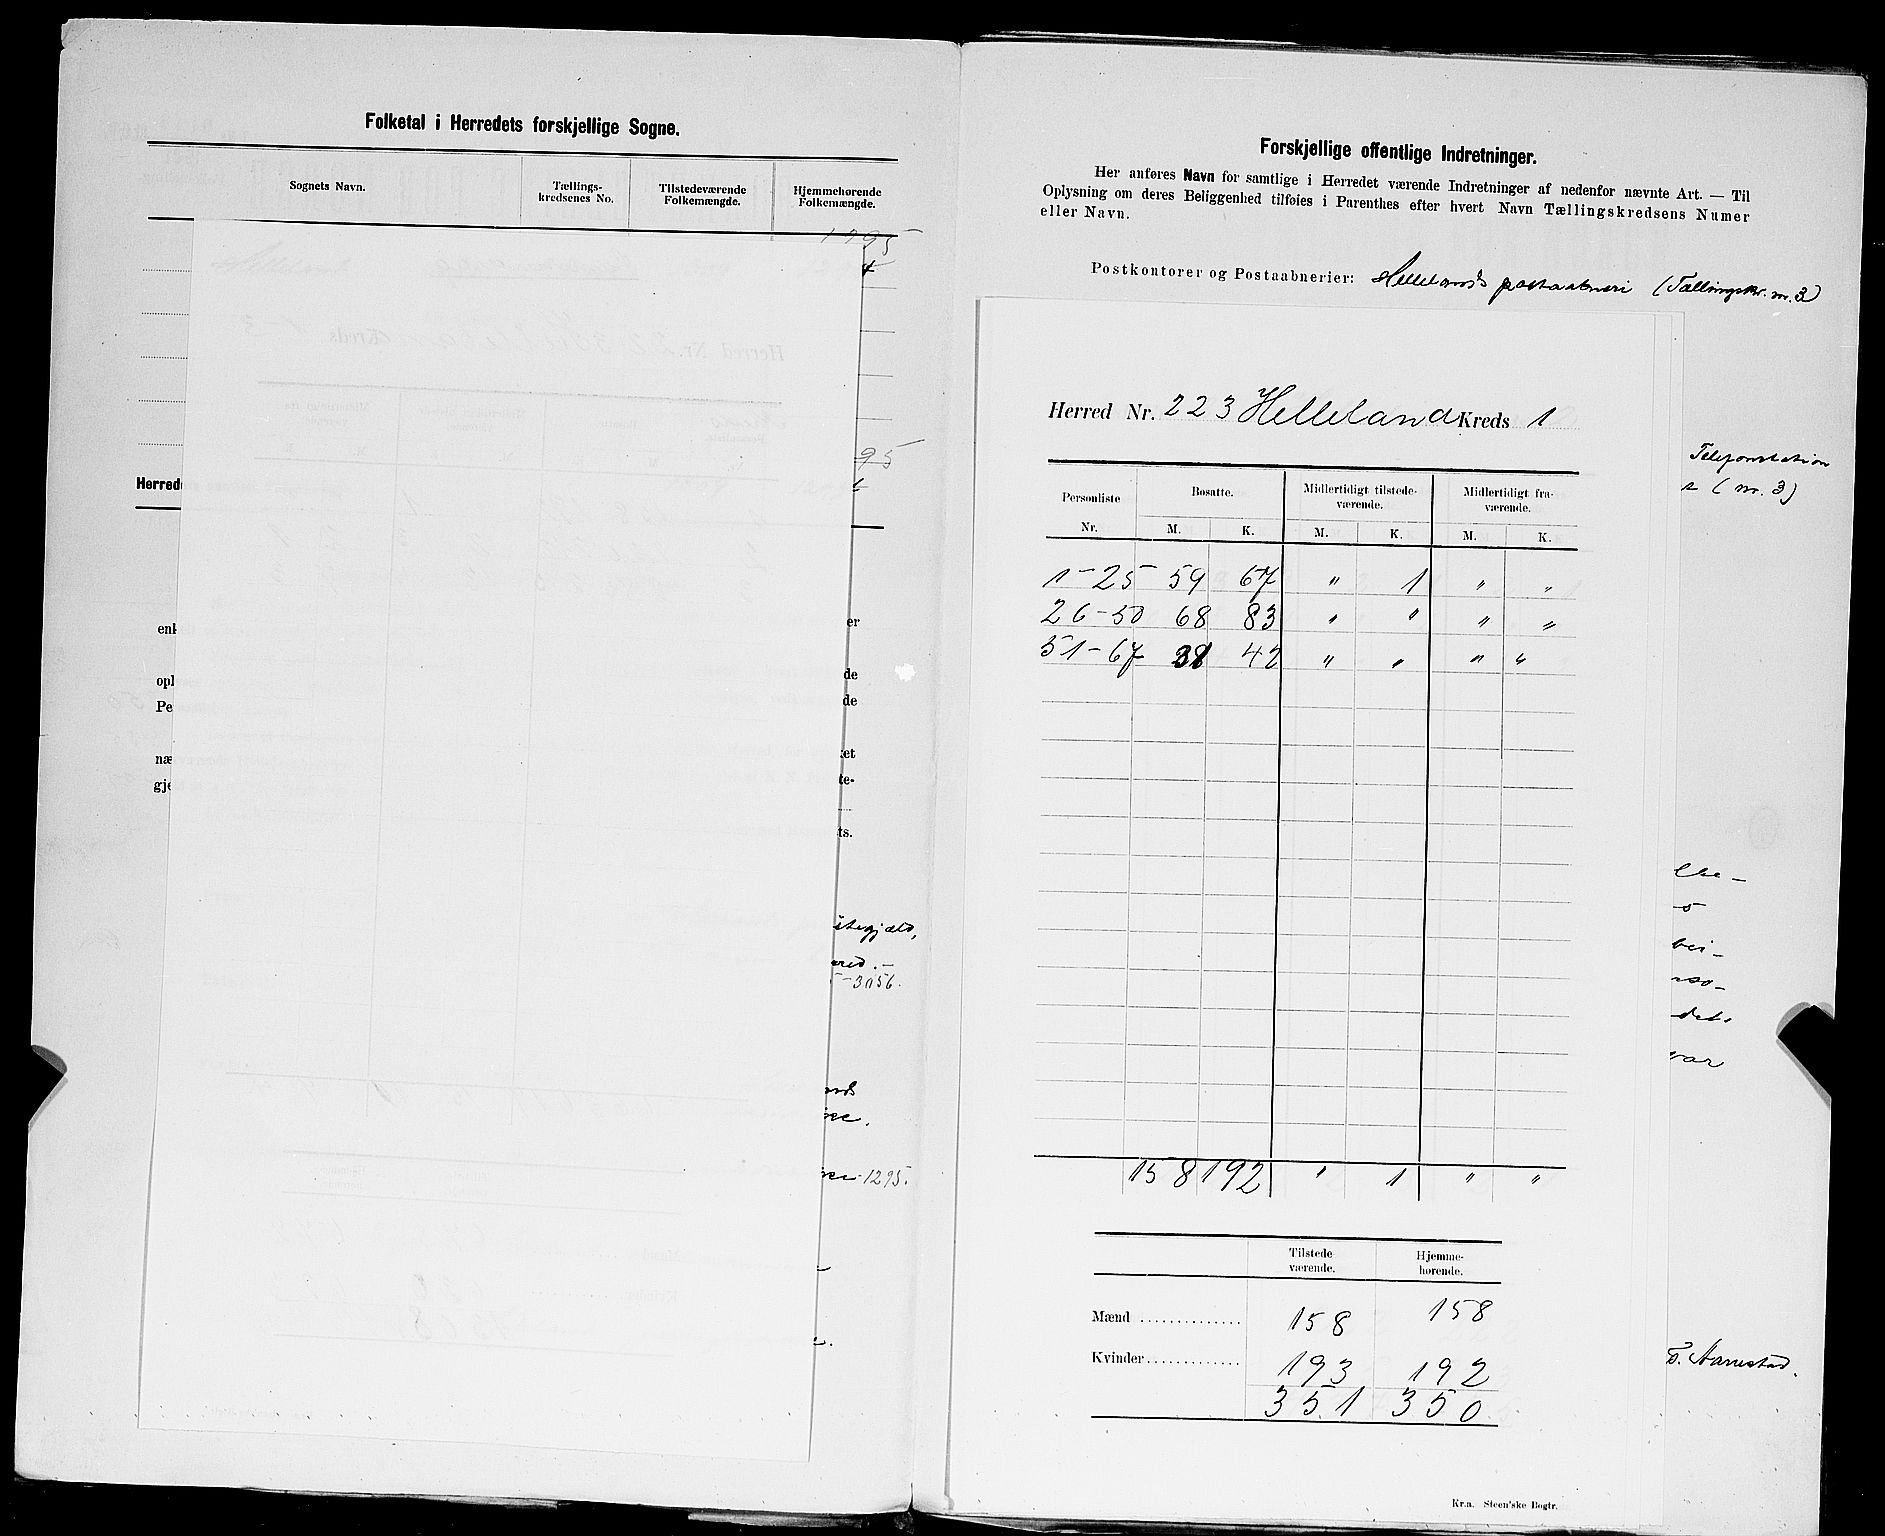 Folketal i Herredets forskjellige Sogne.
Sognets Navn. Tællings-kredsenes No. Tilstedeværende Folkemængde. Hjemmehørende Folkemængde.
95
Herred
enk er
opl de
Pe de
næ ket
gje te-
ts.
3056.
1295.
Forskjellige offentlige Indretninger.
Her anføres Navn for samtlige i Herredet værende Indretninger af nedenfor nævnte Art. — Til
Oplysning om deres Beliggenhed tilføies i Parenthes efter hvert Navn Tællingskredsens Numer
eller Navn.
Postkontorer og Postaabnerier: Hellelands postaabneri (Tællingskr. nr. 3)
Telefonstation
(nr. 3)
Herred Nr. 223 Helleland Kreds 1
Personliste Bosatte. Midlertidigt tilstede-værende. Midlertidigt fra-værende.
Nr. M. K. M. K. M. K.
1-25 59 67 " 1 " "
26-50 68 83 " " " "
51-67 31 42 " " " "
158 192 " 1 " "
Tilstede værende. Hjemme-hørende.
Mænd .............. 158 158
Kvinder............. 193 192
351 350
var
Aarrestad.
Kr.a. Steen'ske Bogtr.